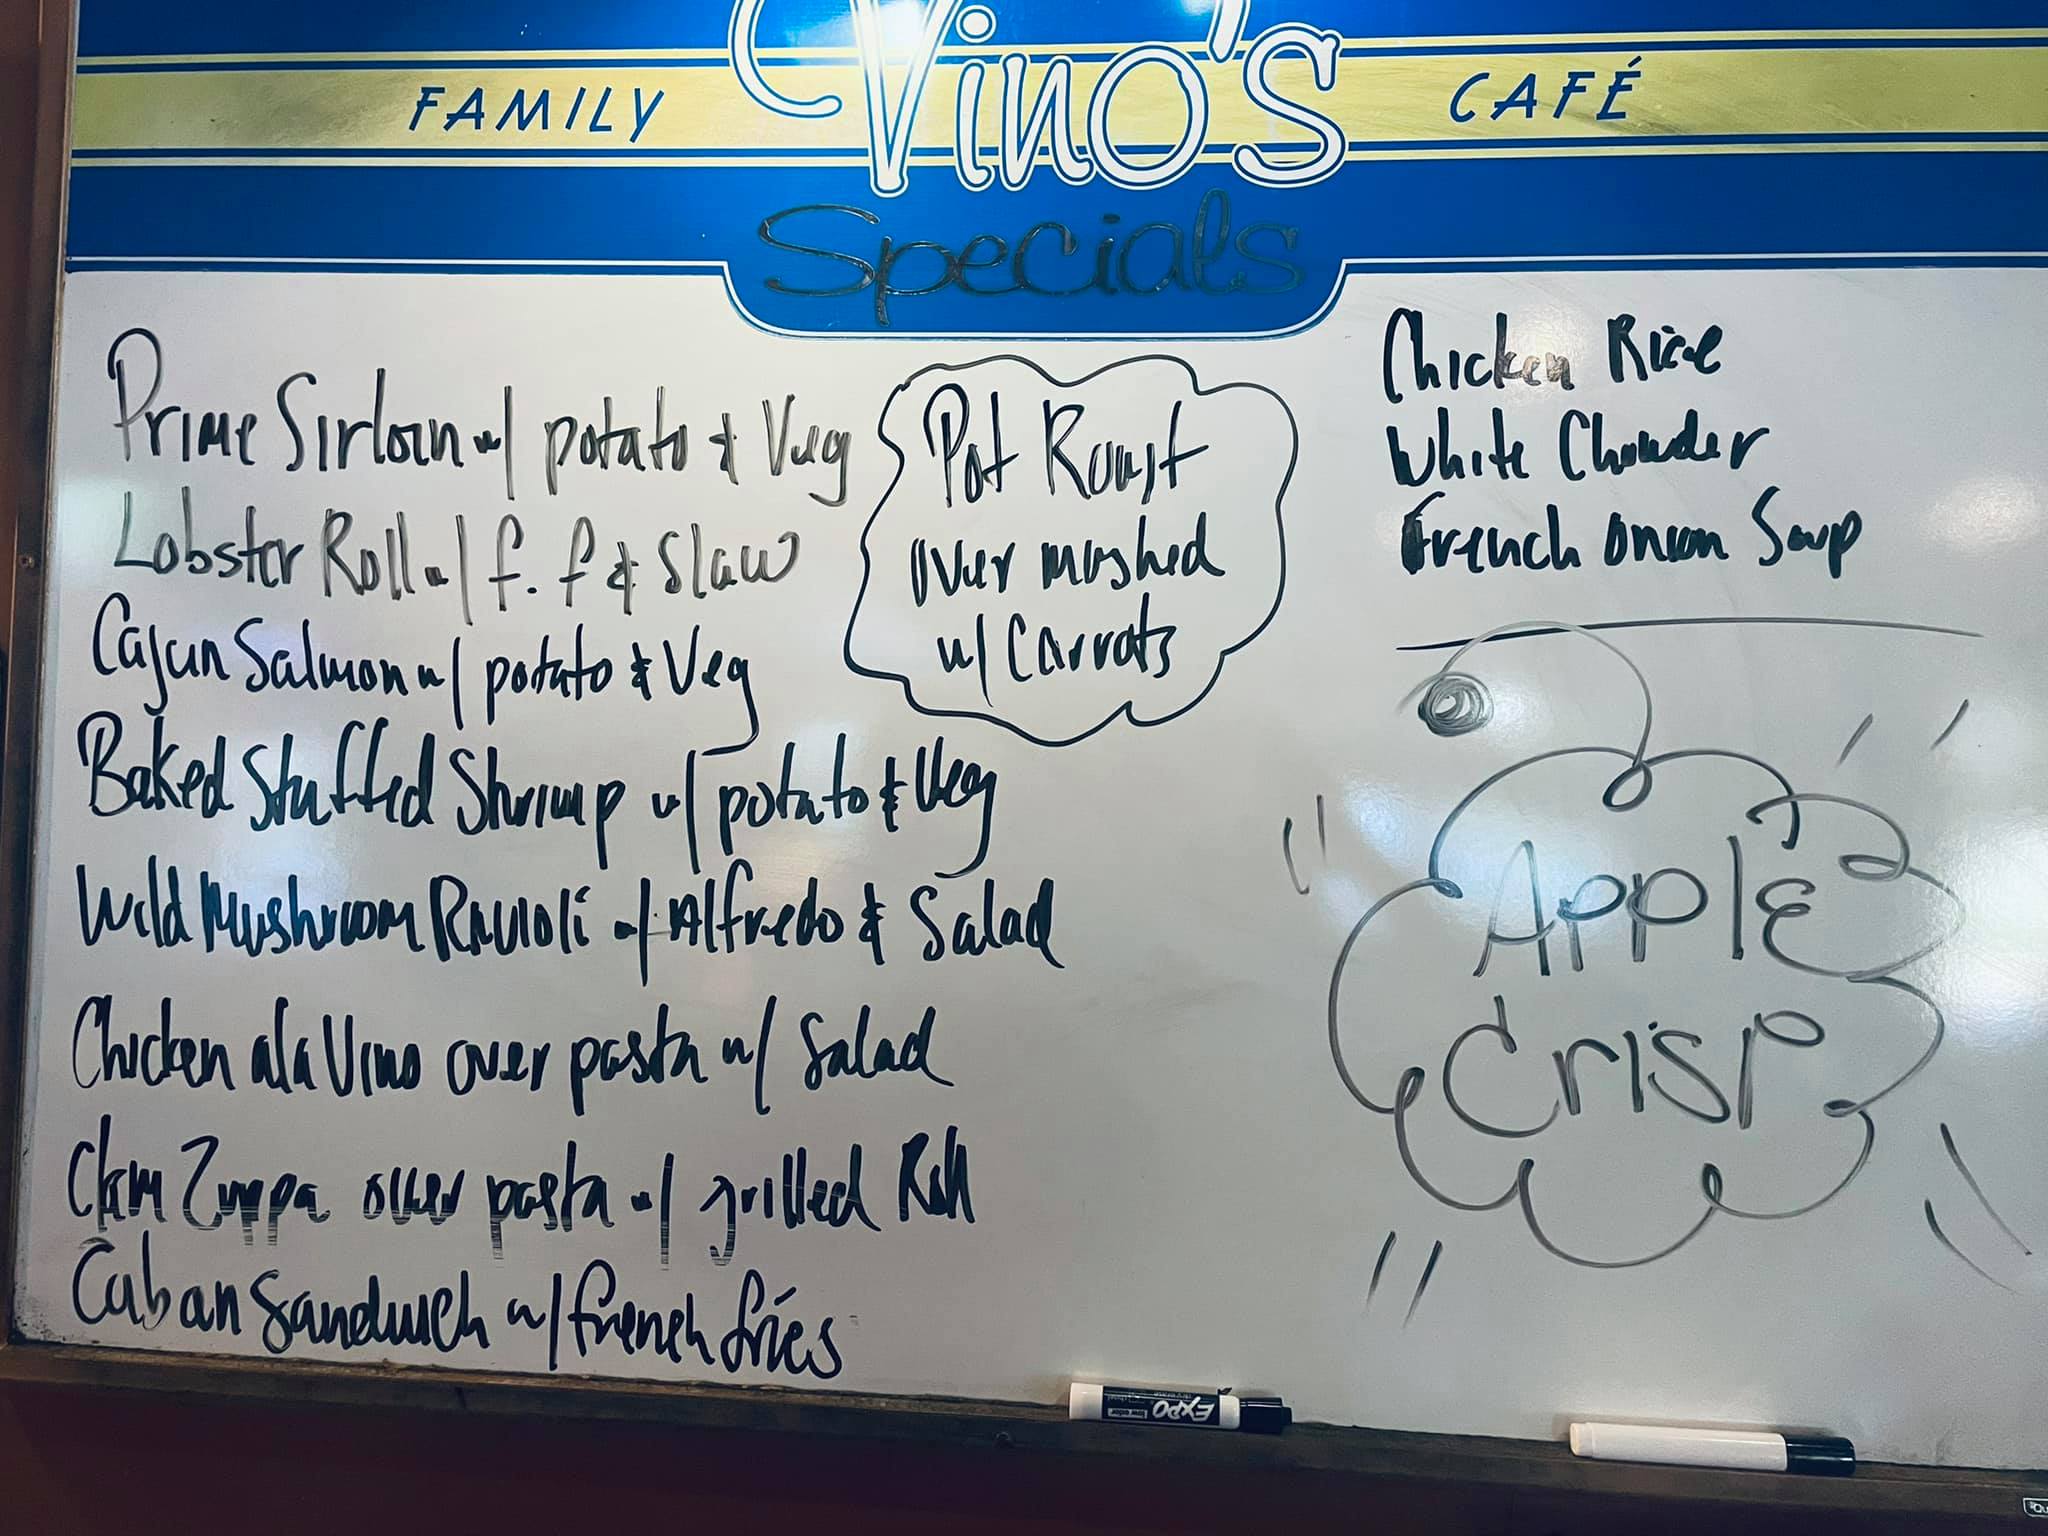 FAMILY Vino's CAFÉ
Specials
Prime Sirloin w/ potato & Veg
Lobster Roll w/ f.f & Slaw
Cajun Salmon w/ potato & Veg
Baked Stuffed Shrimp w/ potato & Veg
Wild Mushroom Ravioli w/ Alfredo & Salad
Chicken ala Vino over pasta w/ Salad
Clam Zuppa over pasta w/ grilled Roll
Cuban Sandwich w/ french fries
Pot Roast
over mashed
w/ Carrots
Chicken Rice
White Chowder
French Onion Soup
Apple
Crisp
EXPO